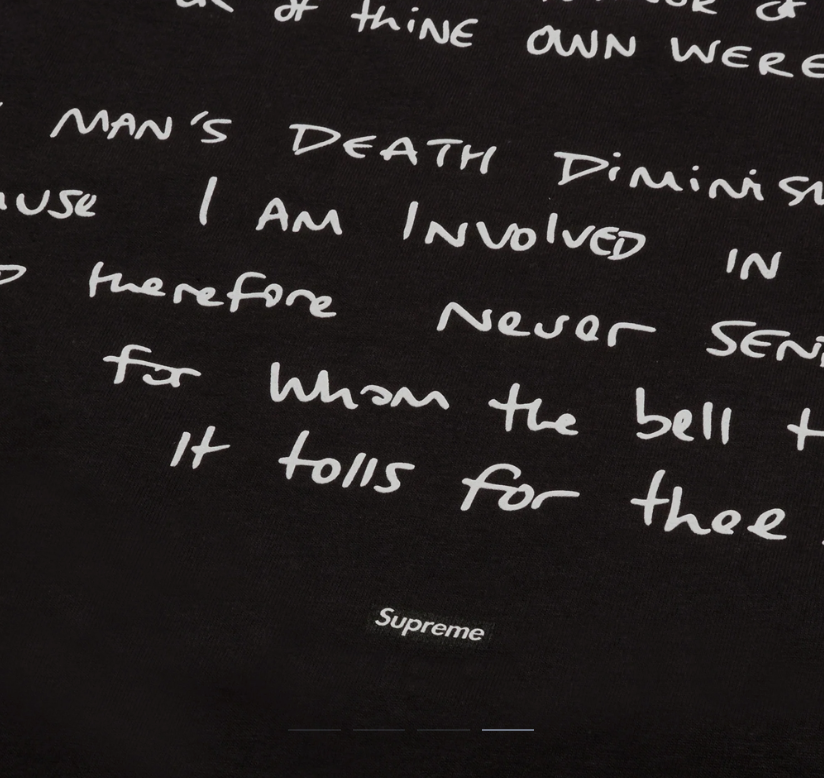 of thine OWN WERE
MAN'S DEATH DiMiNiS
I AM INVOlVED IN
therefore Never SEN
for Whom the bell t
It tolls for thee
Supreme